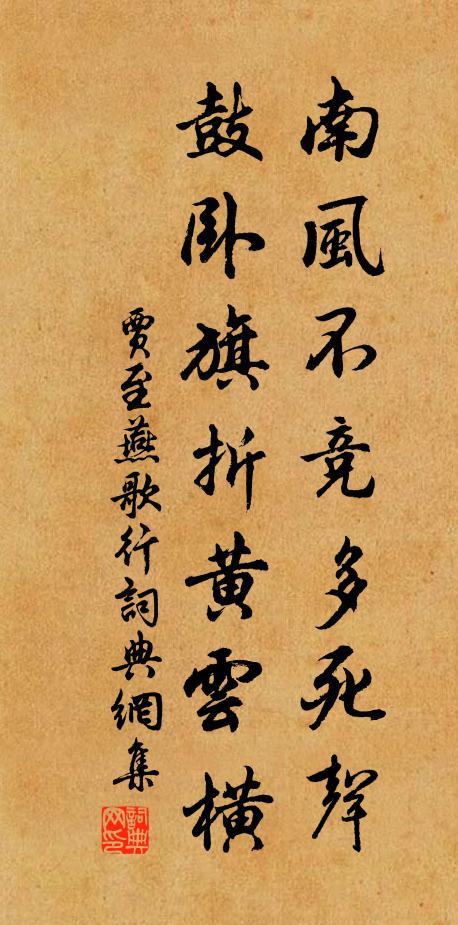 南風不竞多死聲
鼓卧旗折黄雲橫
賈至燕歌行詞典網集
詞典网印